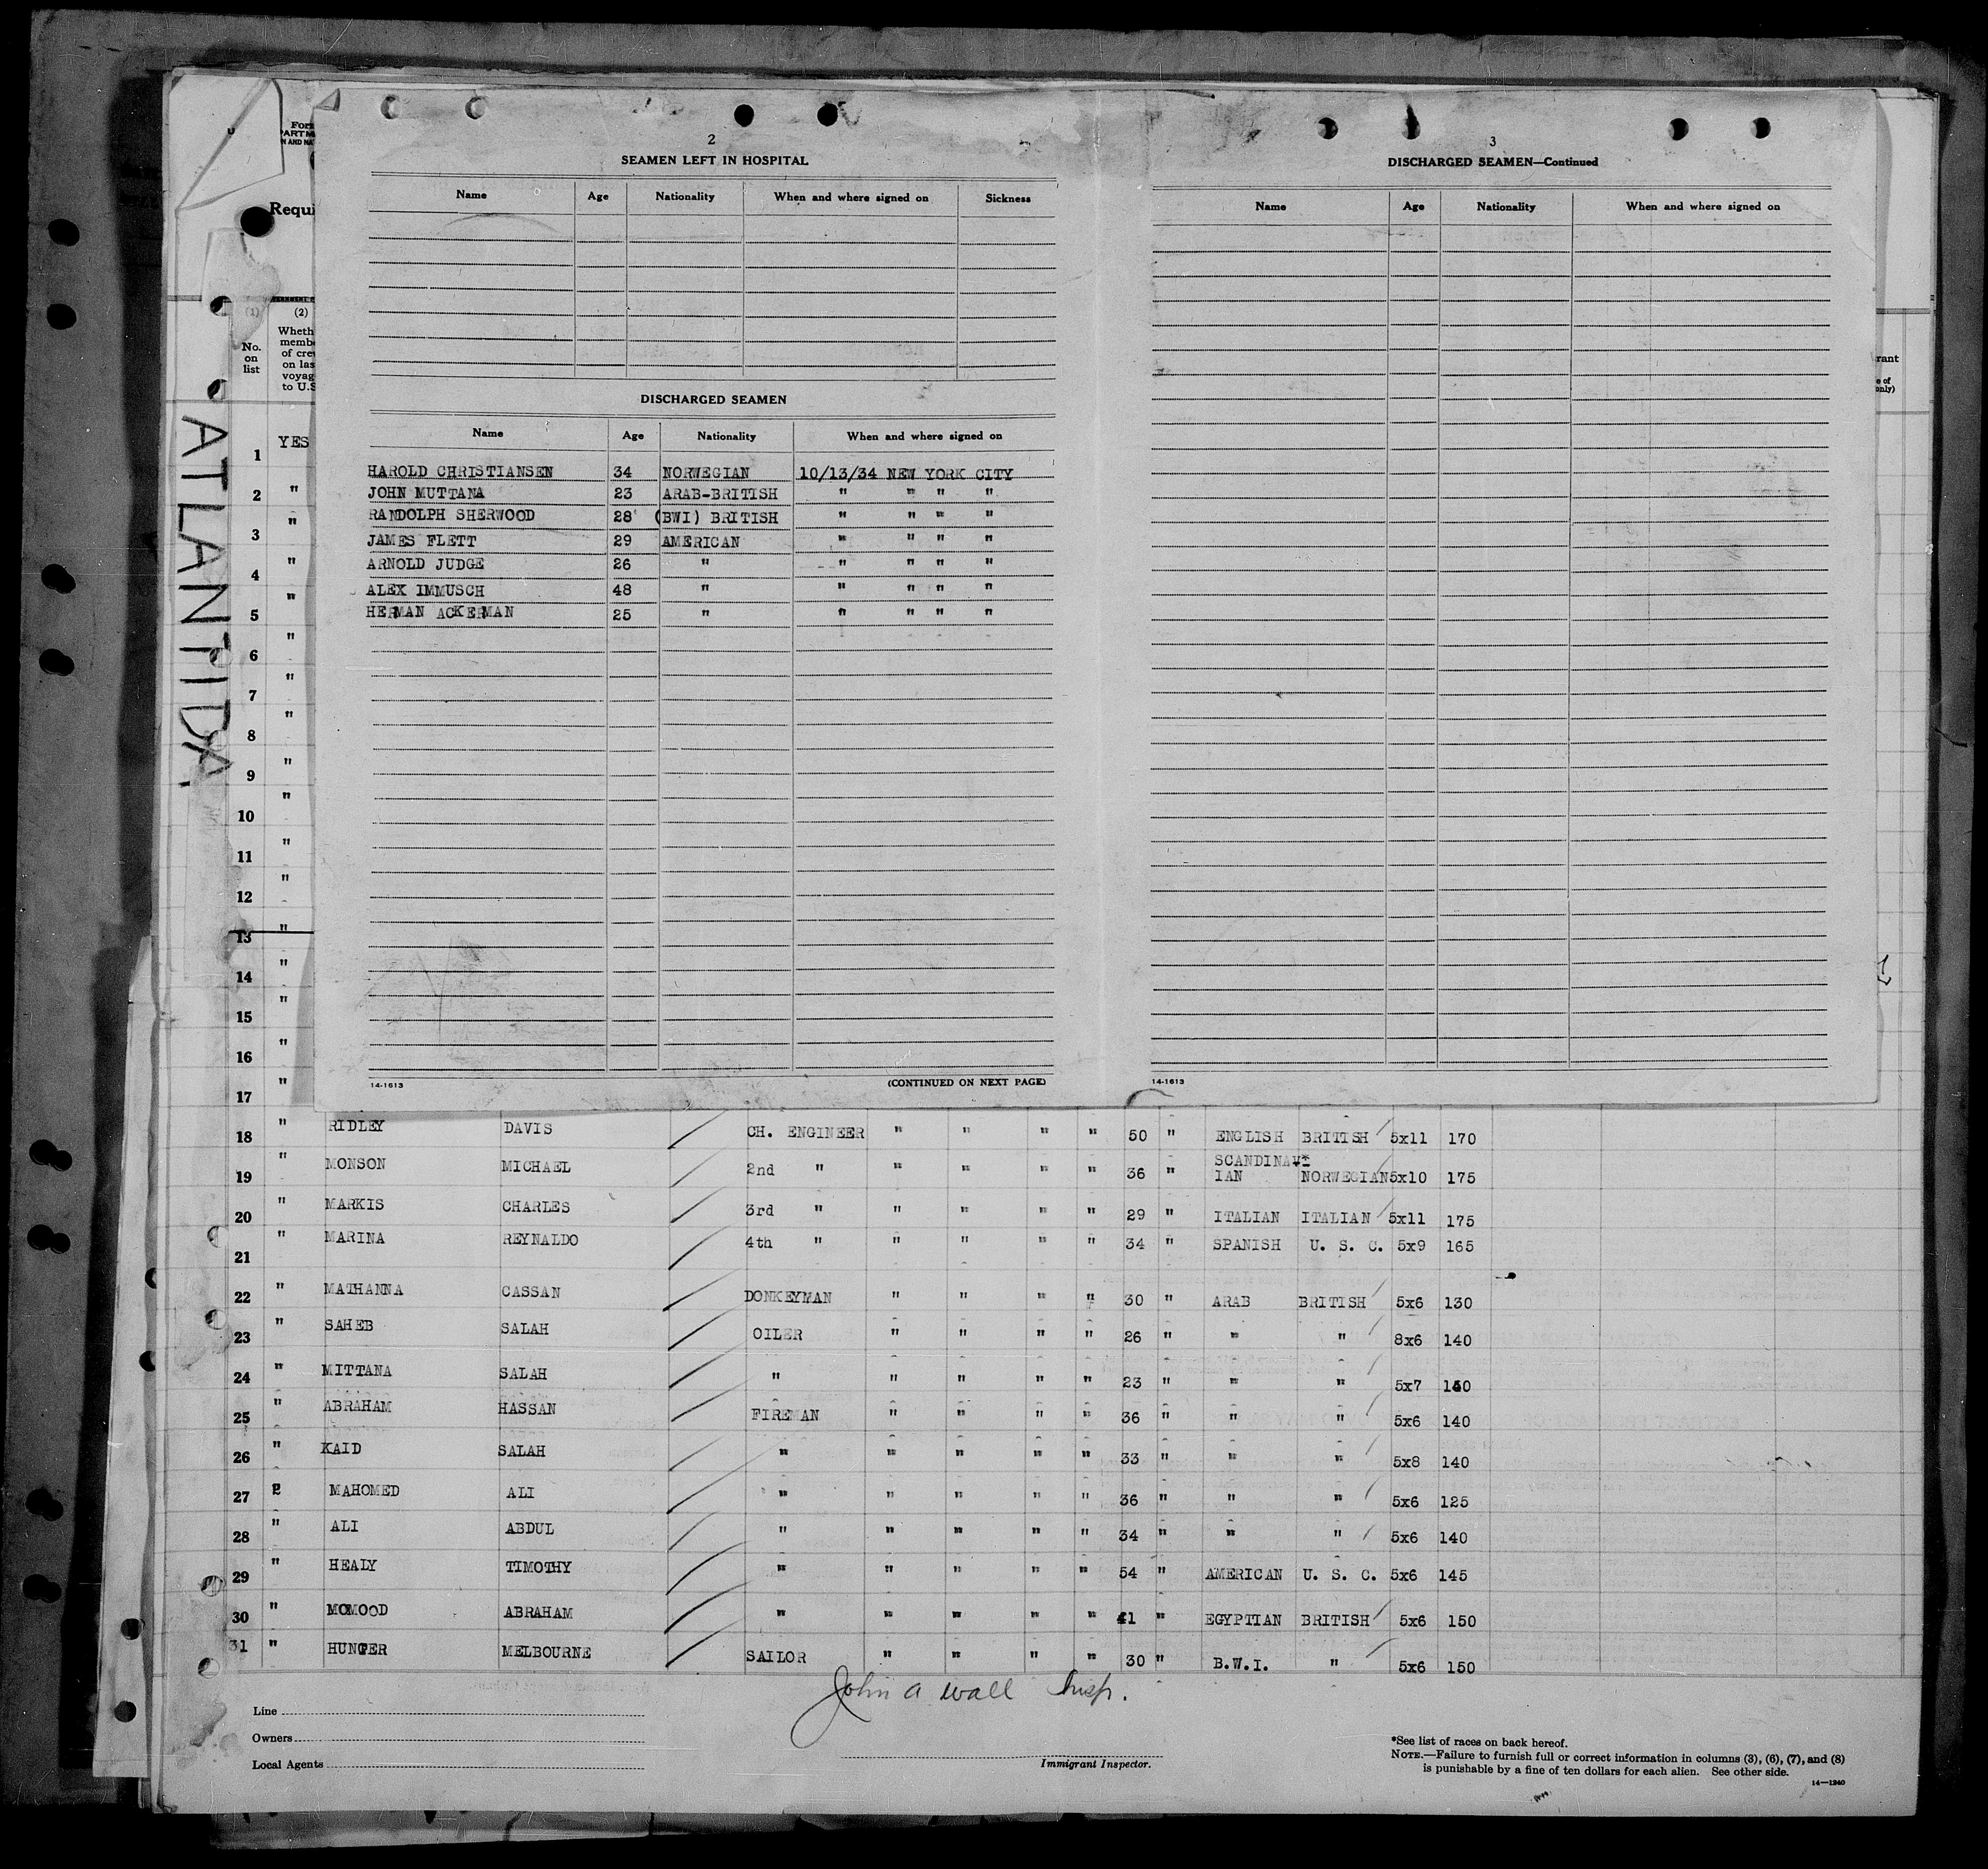 ATLANTIDA
Form
PARTM
N AND NA
Requi
(1) (2)
No.
on
list
Wheth
membe
of crew
on las
voyag
to U.S
2
SEAMEN LEFT IN HOSPITAL
Name Age Nationality When and where signed on Sickness
DISCHARGED SEAMEN
Name Age Nationality When and where signed on
HAROLD CHRISTIANSEN 34 NORWEGIAN 10/13/34 NEW YORK CITY
JOHN MUTTANA 23 ARAB-BRITISH " " " "
RANDOLPH SHERWOOD 28 (BWI) BRITISH " " " "
JAMES FLETT 29 AMERICAN " " " "
ARNOLD JUDGE 26 " " " " "
ALEX IMMUSCH 48 " " " " "
HERMAN ACKERMAN 25 " " " " "
14-1613 (CONTINUED ON NEXT PAGE)
3
DISCHARGED SEAMEN—Continued
Name Age Nationality When and where signed on
14-1613
rant
e of
only)
1 YES
2 "
3 "
4 "
5 "
6 "
7 "
8 "
9 "
10 "
11 "
12 "
13 "
14 "
15 "
16 "
17 "
18 " RIDLEY DAVIS CH. ENGINEER " " " " 50 " ENGLISH BRITISH 5x11 170
19 " MONSON MICHAEL 2nd " " " " " 36 " SCANDINAV-IAN NORWEGIAN 5x10 175
20 " MARKIS CHARLES 3rd " " " " " 29 " ITALIAN ITALIAN 5x11 175
21 " MARINA REYNALDO 4th " " " " " 34 " SPANISH U. S. C. 5x9 165
22 " MATHANNA CASSAN DONKEYMAN " " " " 30 " ARAB BRITISH 5x6 130
23 " SAHEB SALAH OILER " " " " 26 " " " 8x6 140
24 " MITTANA SALAH " " " " " 23 " " " 5x7 140
25 " ABRAHAM HASSAN FIREMAN " " " " 36 " " " 5x6 140
26 " KAID SALAH " " " " " 33 " " " 5x8 140
27 " MAHOMED ALI " " " " " 36 " " " 5x6 125
28 " ALI ABDUL " " " " " 34 " " " 5x6 140
29 " HEALY TIMOTHY " " " " " 54 " AMERICAN U. S. C. 5x6 145
30 " MOMOOD ABRAHAM " " " " " 41 " EGYPTIAN BRITISH 5x6 150
31 " HUNTER MELBOURNE SAILOR " " " " 30 " B.W.I. " 5x6 150
John A Wall Insp.
Line
Owners
Local Agents
Immigrant Inspector.
*See list of races on back hereof.
NOTE.—Failure to furnish full or correct information in columns (3), (6), (7), and (8)
is punishable by a fine of ten dollars for each alien. See other side.
14—1240